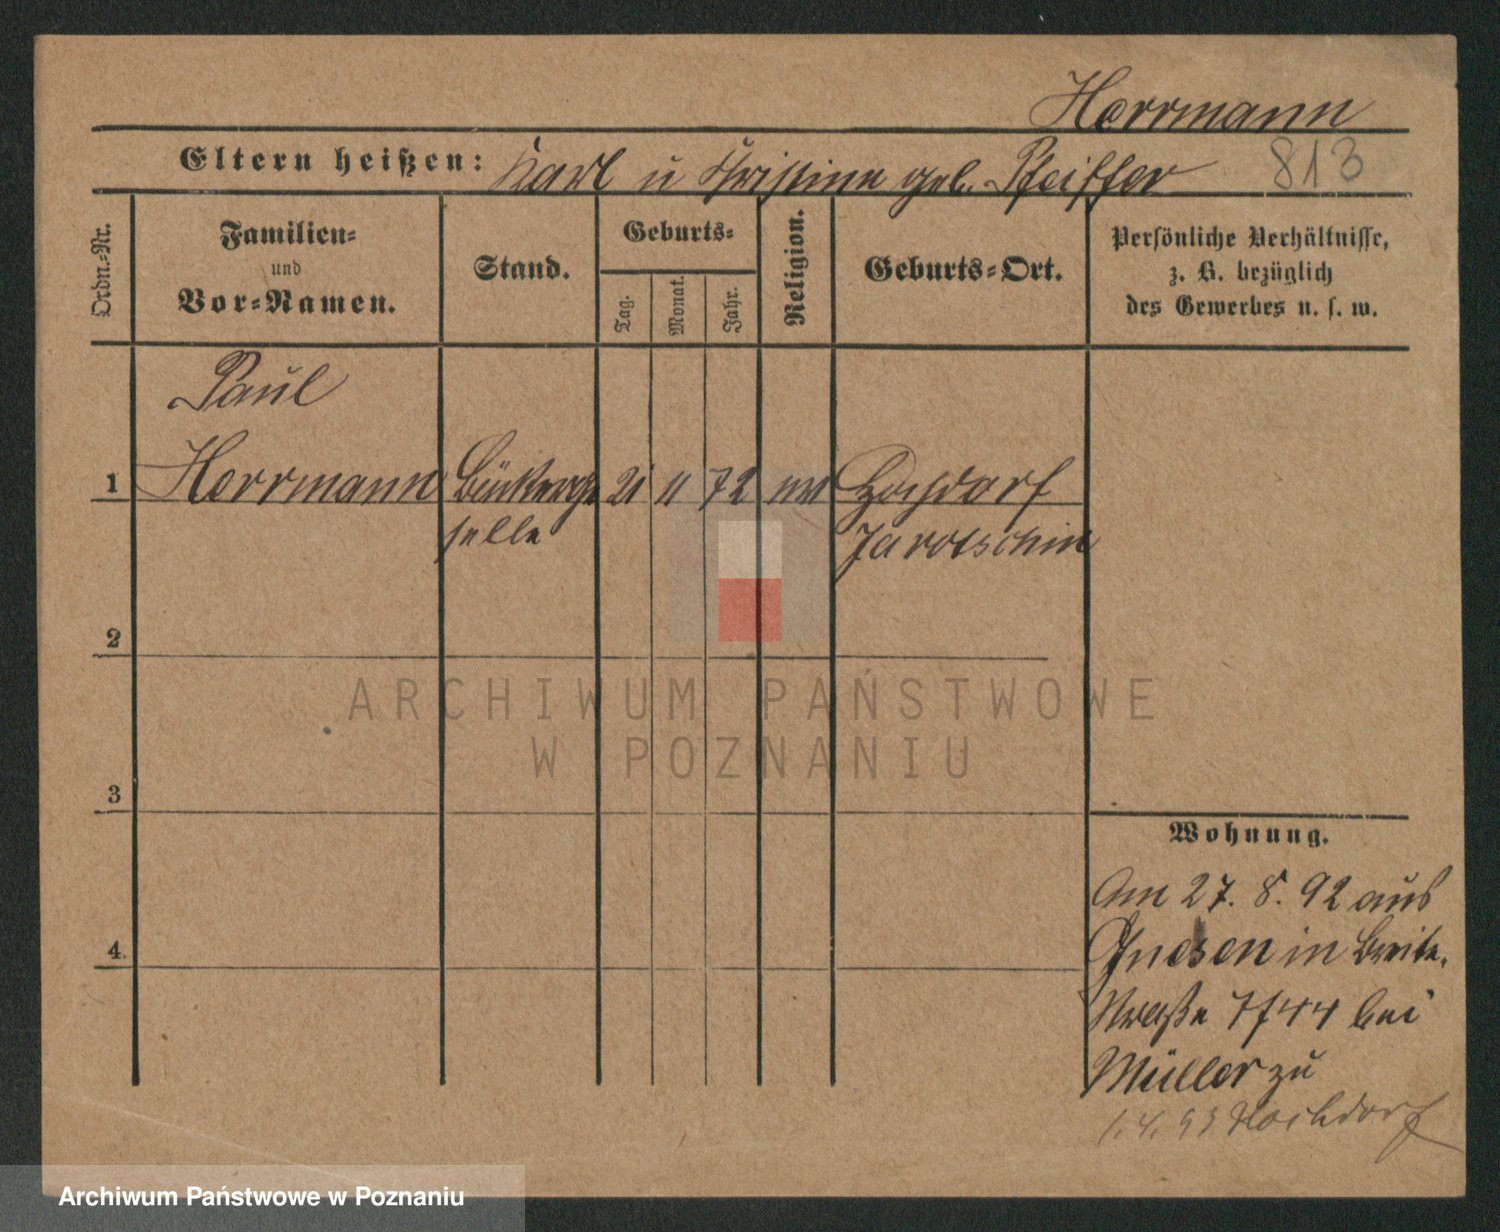 Herrmann
Eltern heißen: Karl u Christine geb. Pfeiffer 813
Ordn.-Nr.
Familien-
und
Vor-Namen.
Stand.
Geburts-
Tag.
Monat.
Jahr.
Religion.
Geburts-Ort.
Persönliche Verhältnisse,
z. B. bezüglich
des Gewerbes u. s. w.
Paul
1 Herrmann 21 11 72 Hochdorf
selle Jarotschin
2
3
4
Wohnung.
Am 27. 8. 92 aus
Gnesen in Breite-
straße 7/44 bei
Müller zu
1. 4. 93 Hochdorf
ARCHIWUM PAŃSTWOWE
W POZNANIU
Archiwum Państwowe w Poznaniu